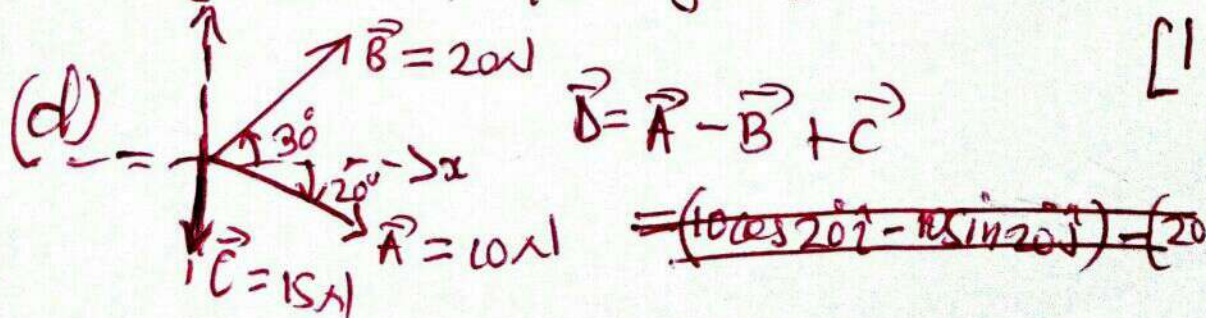 [1
(d)
B⃗ = 20N
30°
20°
x
A⃗ = 10N
C⃗ = 15N
D⃗ = A⃗ - B⃗ + C⃗
=(10cos20î - 10sin20ĵ) - (20